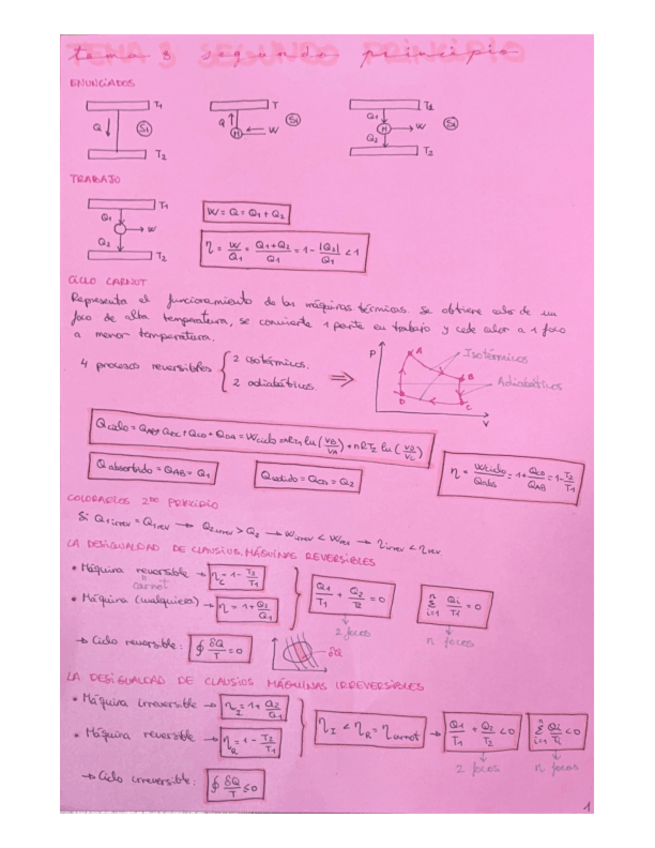 tema 3 segundo principio
ENUNCIADOS
T1 T T1
Q Si Q W Si Q1 W Si
M M
T2 Q2 T2
TRABAJO
T1
Q1 W
Q2
T2
W = Q = Q1 + Q2
η = W/Q1 = Q1+Q2/Q1 = 1 - |Q2|/Q1 < 1
CICLO CARNOT
Representa el funcionamiento de las máquinas térmicas. Se obtiene calor de un
foco de alta temperatura, se convierte 1 parte en trabajo y cede calor a 1 foco
a menor temperatura.
4 procesos reversibles { 2 isotérmicos. ⇒
2 adiabáticos.
P A Isotérmicos
B Adiabáticos
D C
V
Qciclo = QAB + QBC + QCD + QDA = Wciclo = nRT1 ln(VB/VA) + nRT2 ln(
Qabsorbido = QAB = Q1
Qcedido = QCD = Q2
η = Wciclo/Qabs = 1 + QCD/QAB = 1 - T2/T1
COLORARIOS 2DO PRINCIPIO
Si Q1irrev = Q1rev → Q2irrev > Q2 → Wirrev < Wrev → ηirrev < ηrev
LA DESIGUALDAD DE CLAUSIUS, MÁQUINAS REVERSIBLES
• Máquina reversible → ηC = 1 - T2/T1
carnot
• Máquina (cualquiera) → η = 1 + Q2/Q1
Q1/T1 + Q2/T2 = 0
2 focos
n Σ i=1 Qi/Ti = 0
n focos
→ Ciclo reversible: ∮ δQ/T = 0
δQ
LA DESIGUALDAD DE CLAUSIUS MÁQUINAS IRREVERSIBLES
• Máquina irreversible → ηI = 1 + Q2/Q1
• Máquina reversible → ηR = 1 - T2/T1
ηI < ηR = ηcarnot → Q1/T1 + Q2/T2 < 0
2 focos
n Σ i=1 Qi/Ti < 0
n focos
→ Ciclo irreversible: ∮ δQ/T ≤ 0
1